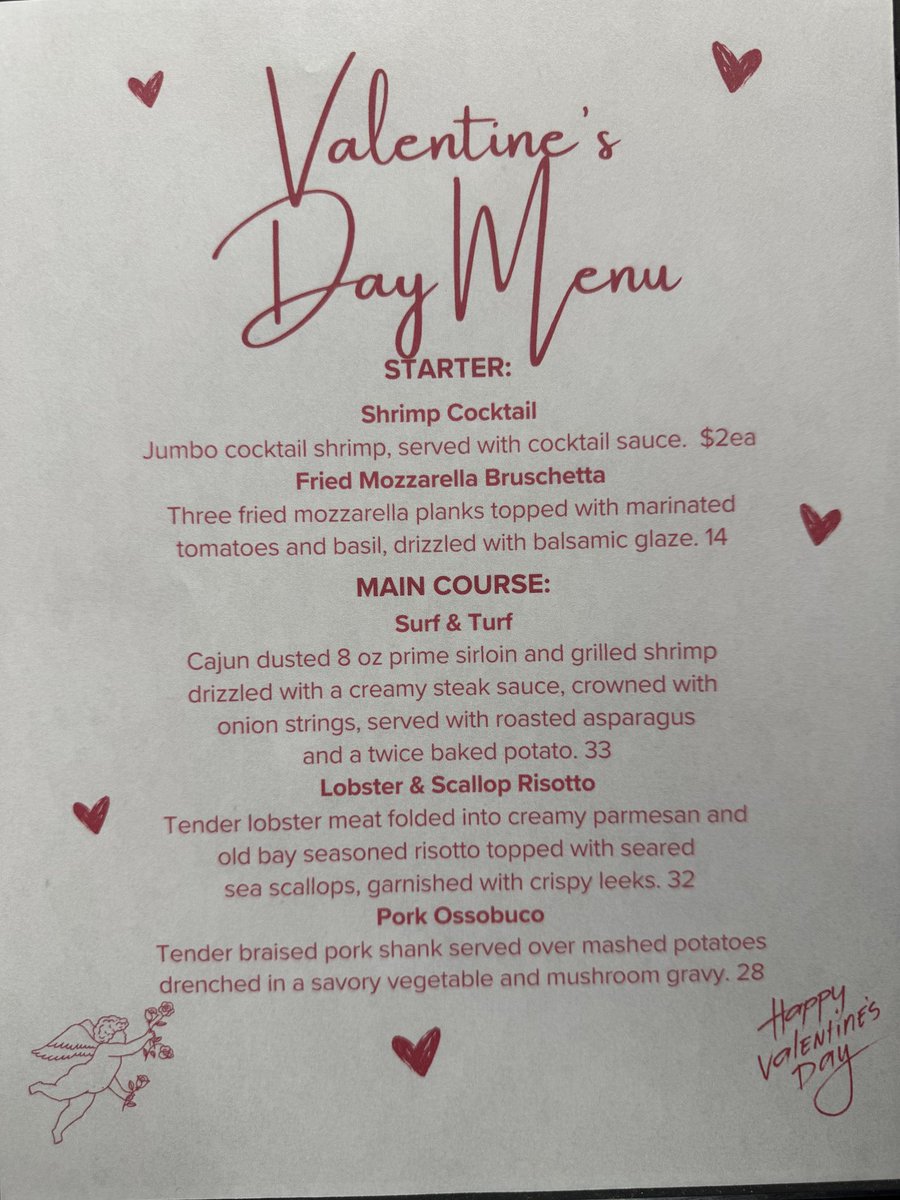 Valentine's
Day Menu
STARTER:
Shrimp Cocktail
Jumbo cocktail shrimp, served with cocktail sauce. $2ea
Fried Mozzarella Bruschetta
Three fried mozzarella planks topped with marinated
tomatoes and basil, drizzled with balsamic glaze. 14
MAIN COURSE:
Surf & Turf
Cajun dusted 8 oz prime sirloin and grilled shrimp
drizzled with a creamy steak sauce, crowned with
onion strings, served with roasted asparagus
and a twice baked potato. 33
Lobster & Scallop Risotto
Tender lobster meat folded into creamy parmesan and
old bay seasoned risotto topped with seared
sea scallops, garnished with crispy leeks. 32
Pork Ossobuco
Tender braised pork shank served over mashed potatoes
drenched in a savory vegetable and mushroom gravy. 28
Happy
Valentine's
Day